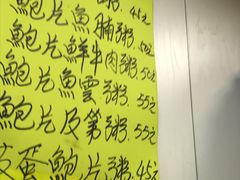 粥. 45元
鮑片魚腩粥. 50元
鮑片鮮牛肉粥. 50元
鮑片魚雲粥. 55元
鮑片及第粥. 55元
皮蛋鮑片粥. 45元